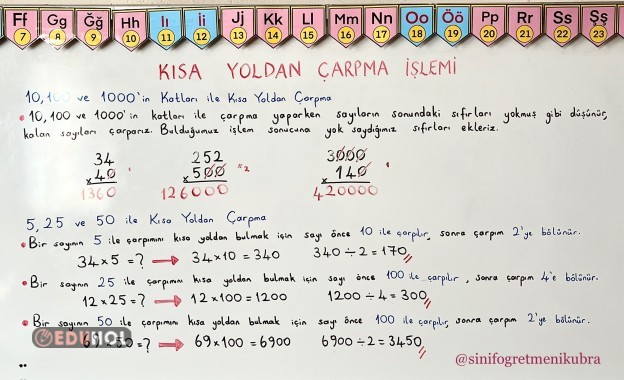 Ff Gg Ğğ Hh Iı İi Jj Kk Ll Mm Nn Oo Öö Pp Rr Ss Şş
7 8 9 10 11 12 13 14 15 16 17 18 19 20 21 22 23
KISA YOLDAN ÇARPMA İŞLEMİ
10, 100 ve 1000'in Katları ile Kısa Yoldan Çarpma
• 10, 100 ve 1000'in katları ile çarpma yaparken sayıların sonundaki sıfırları yokmuş gibi düşünür,
kalan sayıları çarparız. Bulduğumuz işlem sonucuna yok saydığımız sıfırları ekleriz.
34 252 3000
x 40 x 500 x 140
1360 126000 420000
5, 25 ve 50 ile Kısa Yoldan Çarpma
• Bir sayının 5 ile çarpımını kısa yoldan bulmak için sayı önce 10 ile çarpılır, sonra çarpım 2'ye bölünür.
34 x 5 = ? → 34 x 10 = 340 340 ÷ 2 = 170
• Bir sayının 25 ile çarpımını kısa yoldan bulmak için sayı önce 100 ile çarpılır, sonra çarpım 4'e bölünür.
12 x 25 = ? → 12 x 100 = 1200 1200 ÷ 4 = 300
• Bir sayının 50 ile çarpımını kısa yoldan bulmak için sayı önce 100 ile çarpılır, sonra çarpım 2'ye bölünür.
= ? → 69 x 100 = 6900 6900 ÷ 2 = 3450
@sinifogretmenikubra